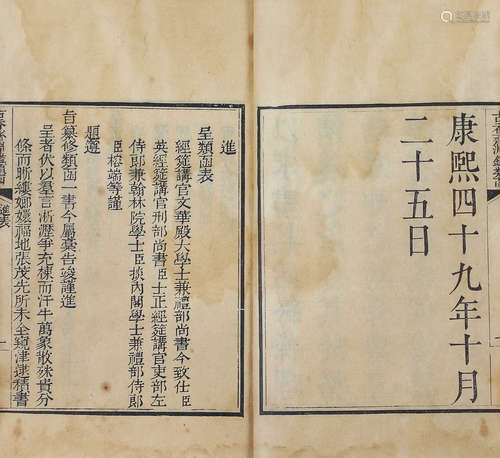 康熙四十九年十月
二十五日
進
呈類函表
經筵講官文華殿大學士兼禮部尚書今致仕臣
英經筵講官刑部尚書臣士正經筵講官吏部左
侍郎兼翰林院學士臣掞內閣學士兼禮部侍郎
臣榕端等謹
題遵
旨纂修類函一書今屬裹告竣謹進
呈者伏以羣言淅瀝爭充棟而汗牛萬象散殊貴分
條而晰縷嫏嬛福地張茂先所未全窺津逮積書
進表